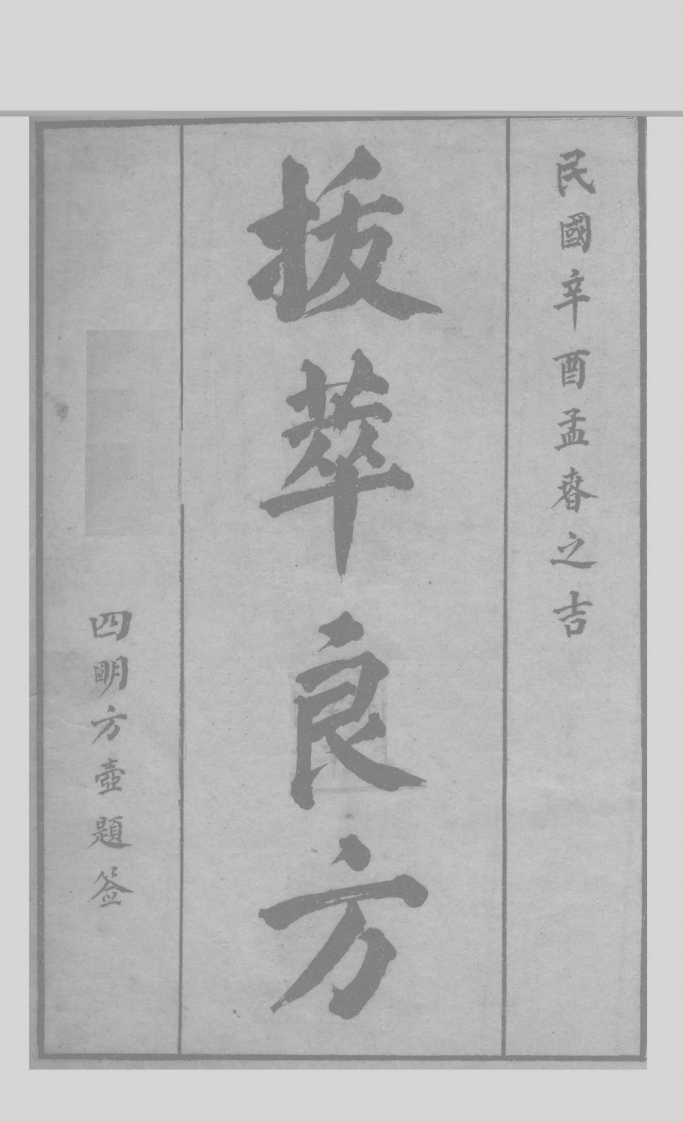 民國辛酉孟春之吉
拔萃良方
四明方壺題签